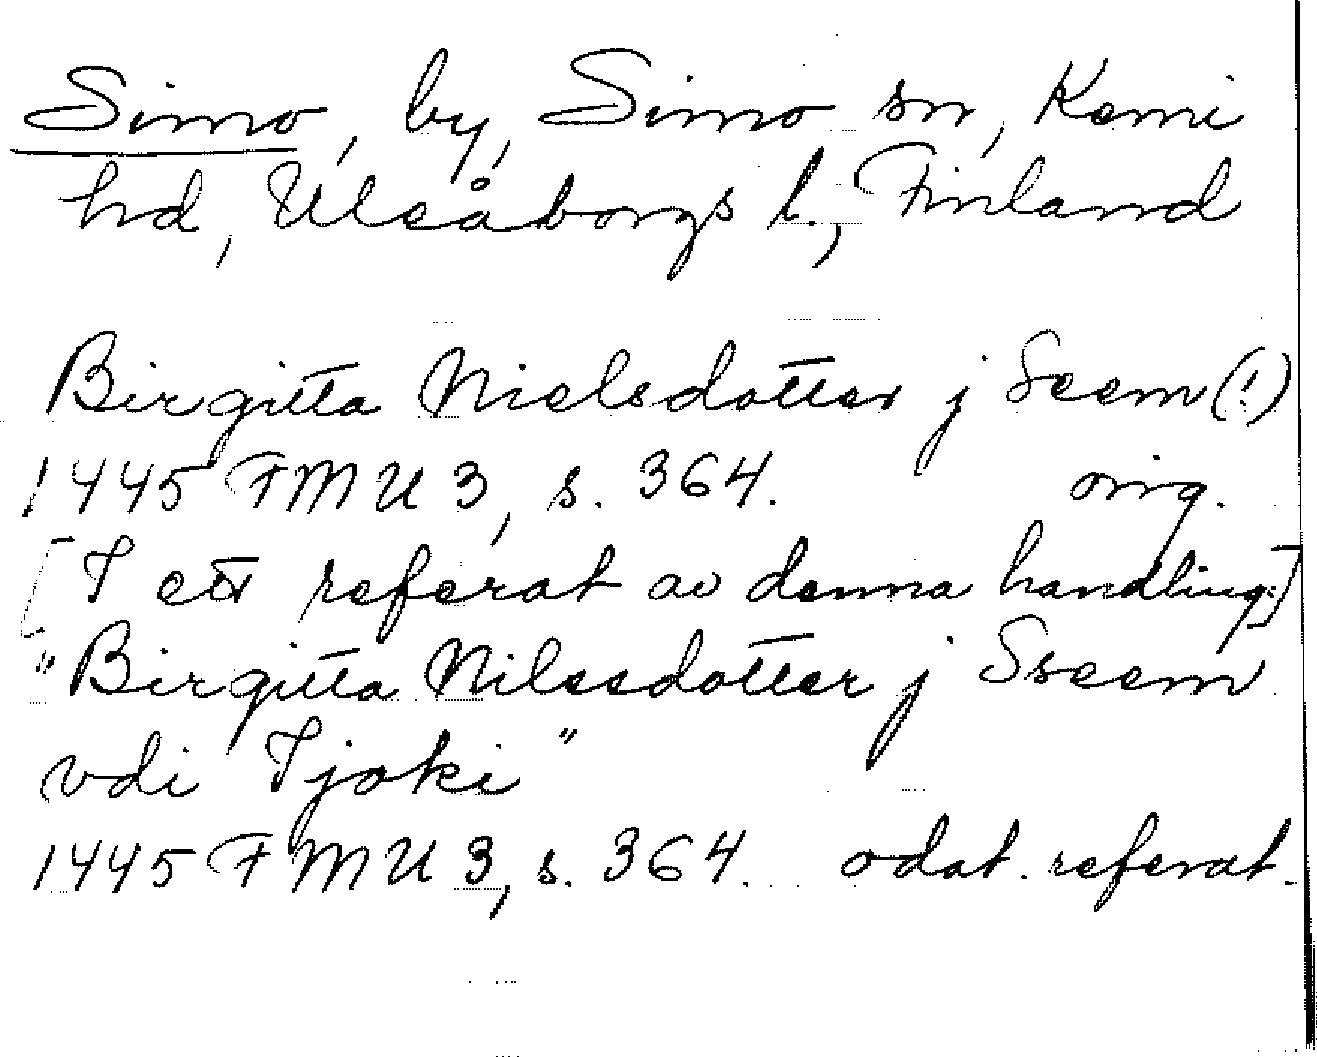 Simo, by, Simo sn, Kemi
hd, Uleåborgs l., Finland
Birgitta Nielsdotter j Seem (!)
1445 FMU 3, s. 364. orig.
[I ett referat av denna handling:]
"Birgitta Nilssdotter j Sseem
vdi Ijoki"
1445 FMU 3, s. 364. odat. referat.